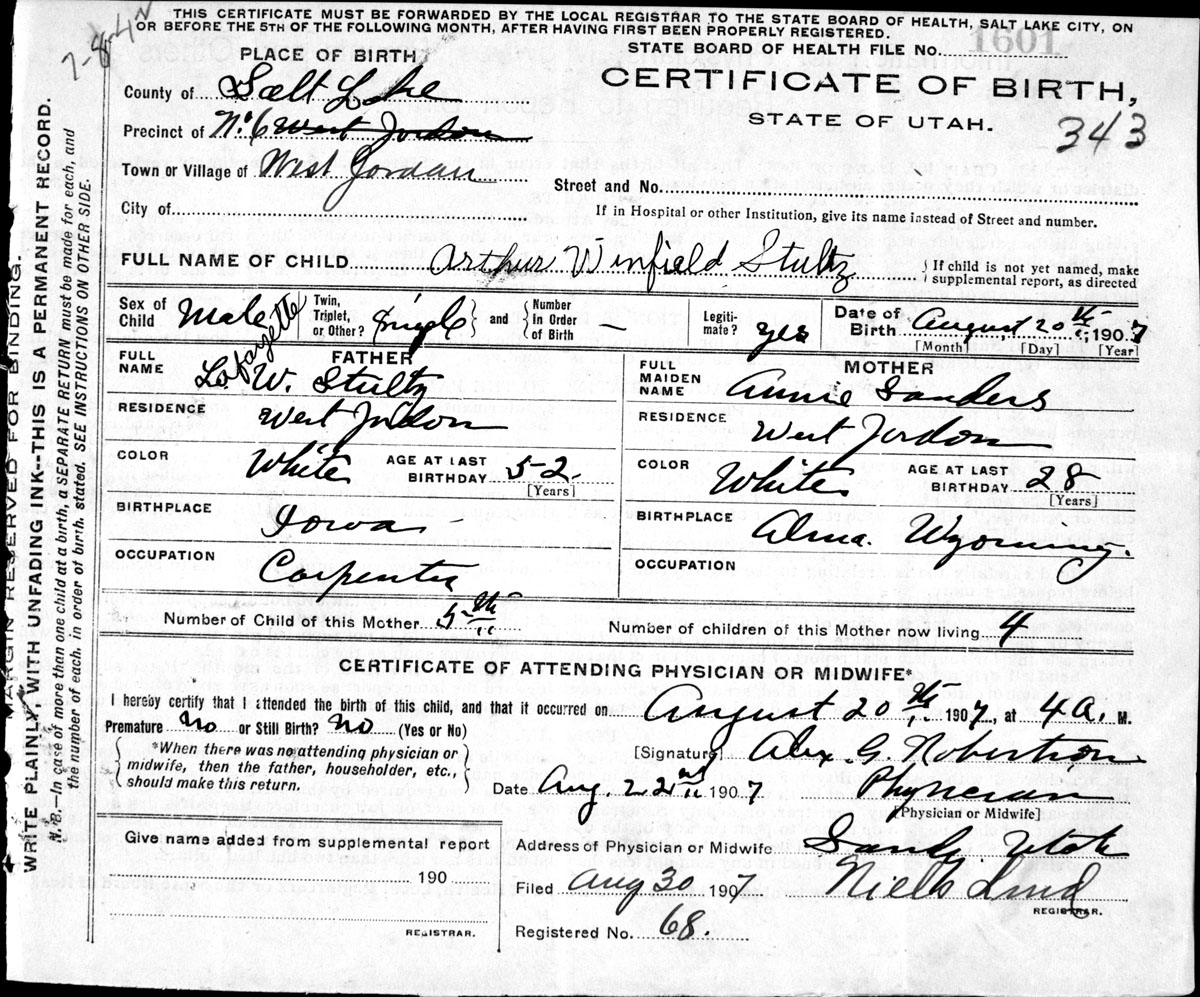 THIS CERTIFICATE MUST BE FORWARDED BY THE LOCAL REGISTRAR TO THE STATE BOARD OF HEALTH, SALT LAKE CITY, ON
OR BEFORE THE 5TH OF THE FOLLOWING MONTH, AFTER HAVING FIRST BEEN PROPERLY REGISTERED.
PLACE OF BIRTH
STATE BOARD OF HEALTH FILE No. 1601
CERTIFICATE OF BIRTH,
STATE OF UTAH.
343
County of Salt Lake
Precinct of No. 6 West Jordon
Town or Village of West Jordan
Street and No.
City of
If in Hospital or other Institution, give its name instead of Street and number.
FULL NAME OF CHILD Arthur Winfield Stultz
If child is not yet named, make
supplemental report, as directed
Sex of Child Male
Twin, Triplet, or Other? Single and Number In Order of Birth —
Legiti-mate? yes
Date of Birth August 20th 1907
[Month] [Day] [Year]
FATHER
FULL NAME Lafayette W. Stultz
RESIDENCE West Jordon
COLOR White AGE AT LAST BIRTHDAY 52 [Years]
BIRTHPLACE Iowa
OCCUPATION Carpenter
MOTHER
FULL MAIDEN NAME Annie Sanders
RESIDENCE West Jordon
COLOR White AGE AT LAST BIRTHDAY 28 [Years]
BIRTHPLACE Alma. Wyoming.
OCCUPATION
Number of Child of this Mother 5th
Number of children of this Mother now living 4
CERTIFICATE OF ATTENDING PHYSICIAN OR MIDWIFE*
I hereby certify that I attended the birth of this child, and that it occurred on August 20th 1907, at 4 A. M.
Premature No or Still Birth? No (Yes or No)
*When there was no attending physician or
midwife, then the father, householder, etc.,
should make this return.
[Signature] Alex G. Robertson
Date Aug. 22nd 1907 Physician
[Physician or Midwife]
Give name added from supplemental report
190
REGISTRAR.
Address of Physician or Midwife Sandy. Utah
Filed Aug 30 1907 Niels Lind
REGISTRAR.
Registered No. 68.
MARGIN RESERVED FOR BINDING.
WRITE PLAINLY, WITH UNFADING INK--THIS IS A PERMANENT RECORD.
N. B.—In case of more than one child at a birth, a SEPARATE RETURN must be made for each, and
the number of each, in order of birth, stated. SEE INSTRUCTIONS ON OTHER SIDE.